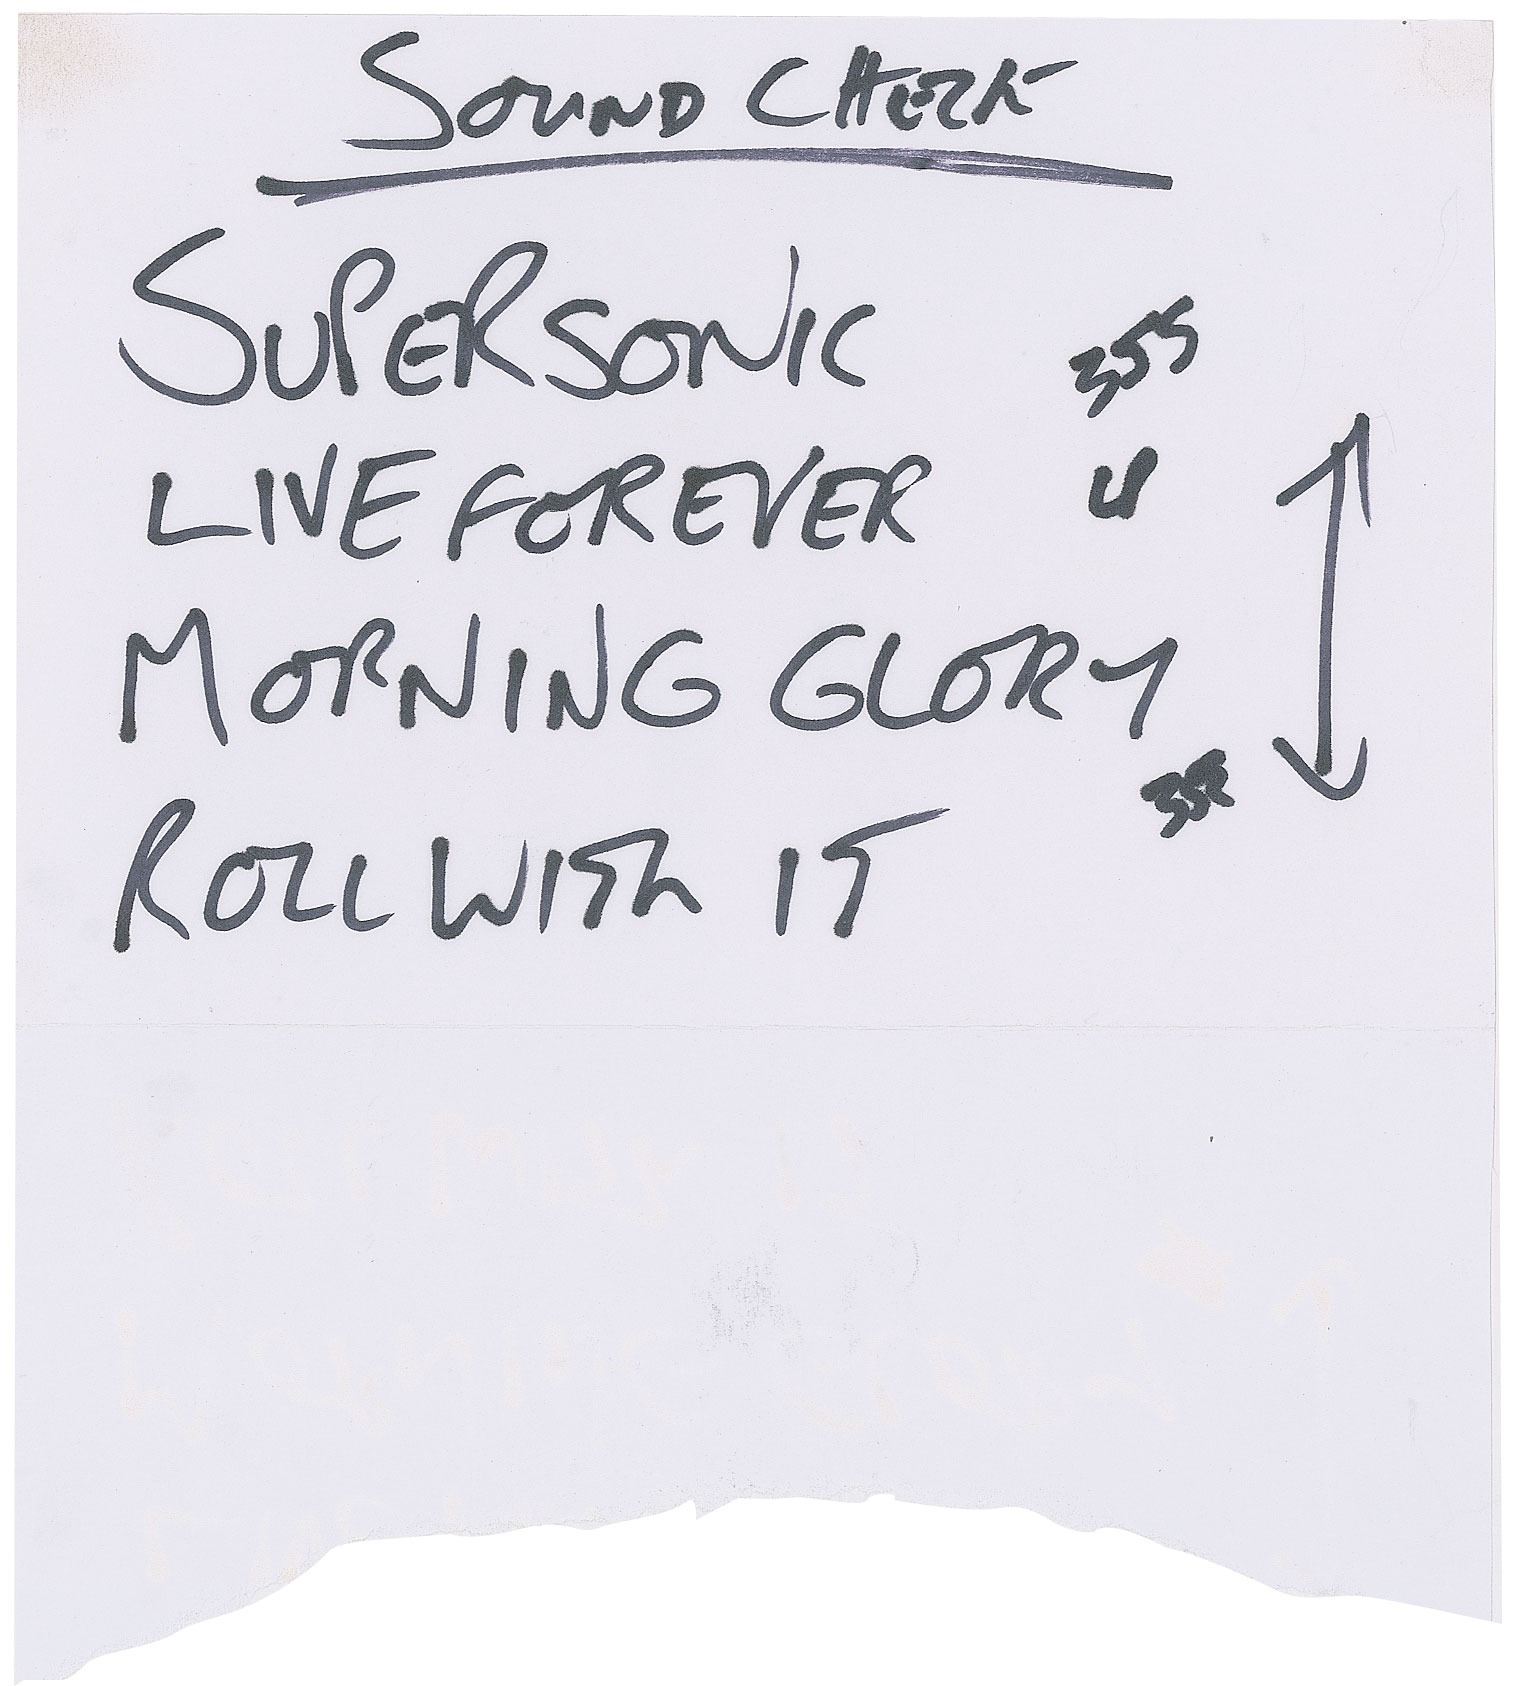 SOUND CHECK
SUPERSONIC 355
LIVE FOREVER
MORNING GLORY
ROLL WITH IT